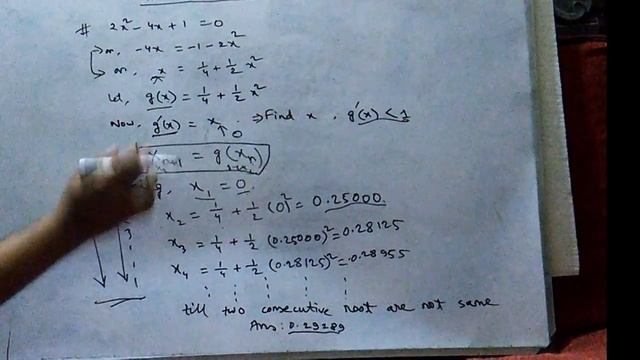 # 2x² - 4x + 1 = 0
or, -4x = -1 - 2x²
or, x = 1/4 + 1/2 x²
Let, g(x) = 1/4 + 1/2 x²
Now, g'(x) = x ⇒ Find x, g'(x) < 1
0
= g(x_n)
x₁ = 0
x₂ = 1/4 + 1/2 (0)² = 0.25000
x₃ = 1/4 + 1/2 (0.25000)² = 0.28125
x₄ = 1/4 + 1/2 (0.28125)² = 0.28955
till two consecutive root are not same
Ans: 0.29289